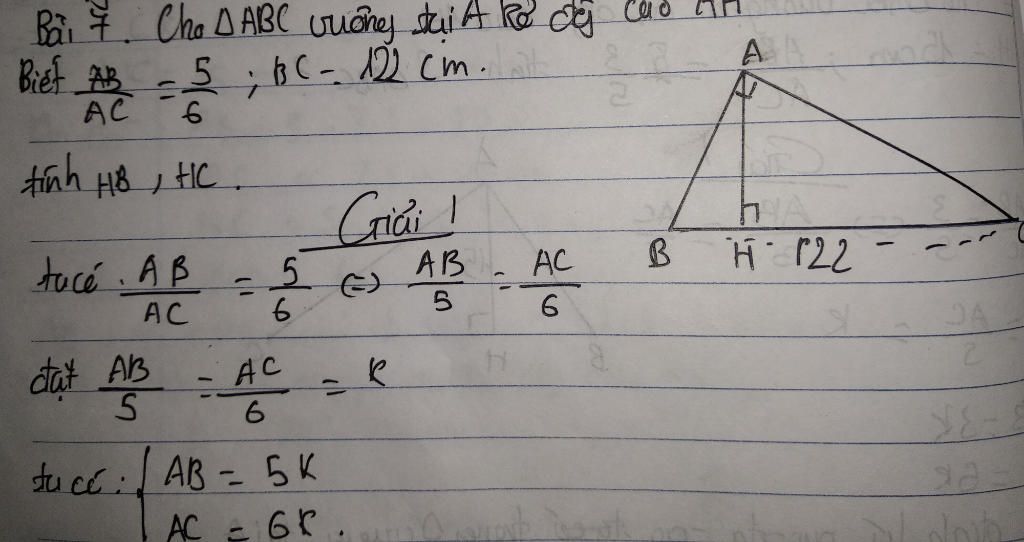 Bài 7. Cho ΔABC vuông tại A kẻ đg cao AH
Biết AB/AC = 5/6 ; BC = 122 cm.
tính HB, HC.
Giải
ta có. AB/AC = 5/6 <=> AB/5 = AC/6
đặt AB/5 = AC/6 = K
ta có: { AB = 5K
AC = 6K.
A
B H 122 C